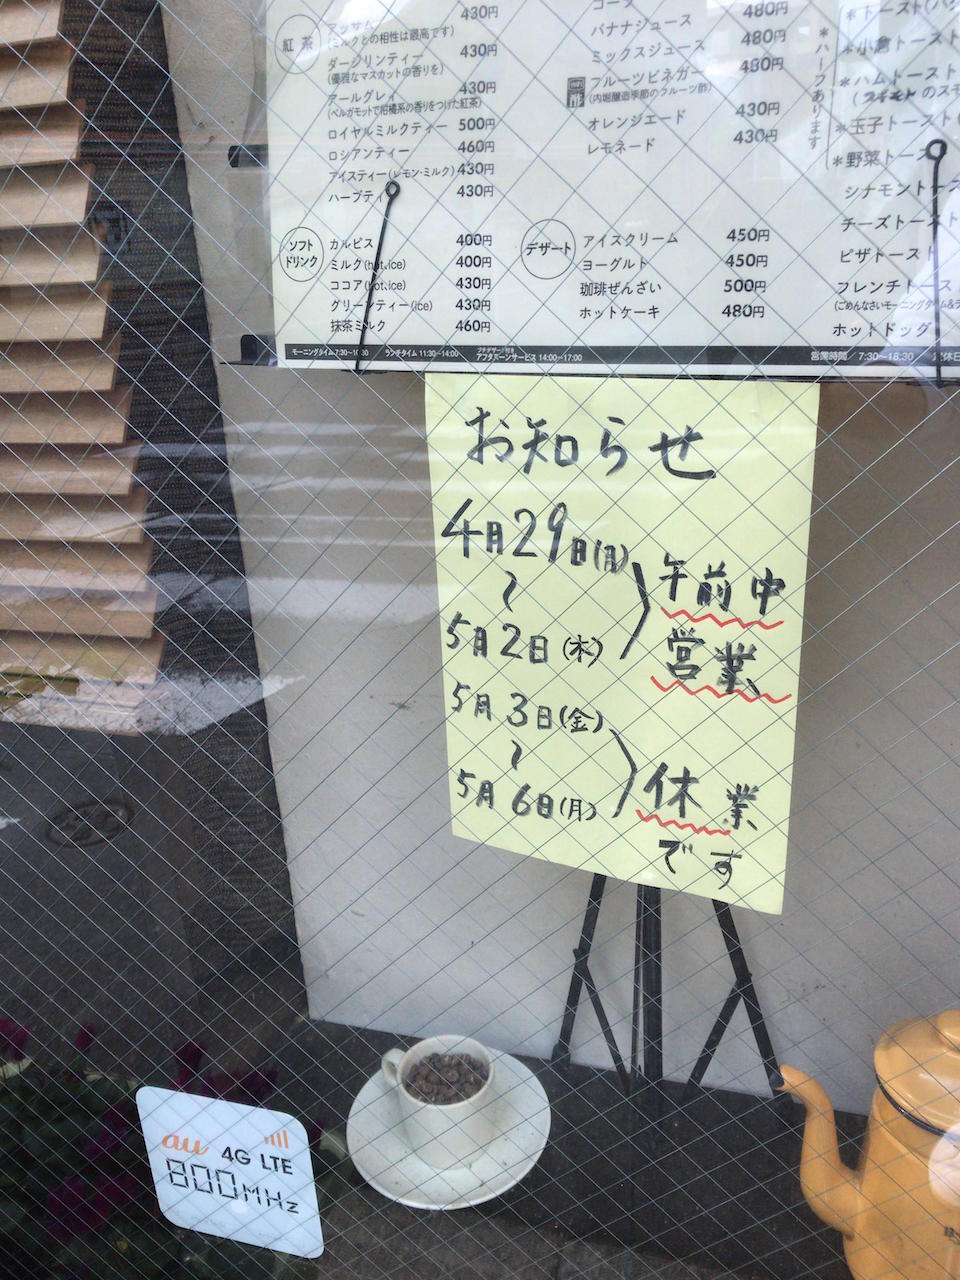 紅茶
430円
(ミルクとの相性は最高です)
ダージリンティー 430円
(優雅なマスカットの香りを)
アールグレイ 430円
(ベルガモットで柑橘系の香りをつけた紅茶)
ロイヤルミルクティー 500円
ロシアンティー 460円
アイスティー(レモン・ミルク) 430円
ハーブティ 430円
ソフトドリンク
カルピス 400円
ミルク(hot.ice) 400円
ココア(hot.ice) 430円
グリーンティー(ice) 430円
抹茶ミルク 460円
480円
バナナジュース 480円
ミックスジュース 480円
フルーツビネガー
(内堀醸造季節のフルーツ酢)
オレンジエード 430円
レモネード 430円
デザート
アイスクリーム 450円
ヨーグルト 450円
珈琲ぜんざい 500円
ホットケーキ 480円
*ハーフあります
*トースト(バ
*小倉トースト
*ハムトースト
のスモ
*玉子トースト(
*野菜トース
シナモントース
チーズトースト
ピザトースト
フレンチトースト
(ごめんなさいモーニングタイム&ラ
ホットドッグ
モーニングタイム 7:30~10:30 ランチタイム 11:30~14:00 プチデザート付き アフタヌーンサービス 14:00~17:00 営業時間/7:30~18:30 定休日
お知らせ
4月29日(月)
〜
5月2日(木)
午前中
営業
5月3日(金)
〜
5月6日(月)
休業
です
au 4G LTE
800MHz